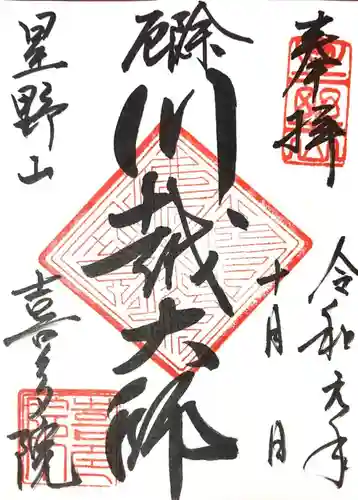 奉拝
令和元年
十月　日
厄除
川越大師
星野山
喜多院